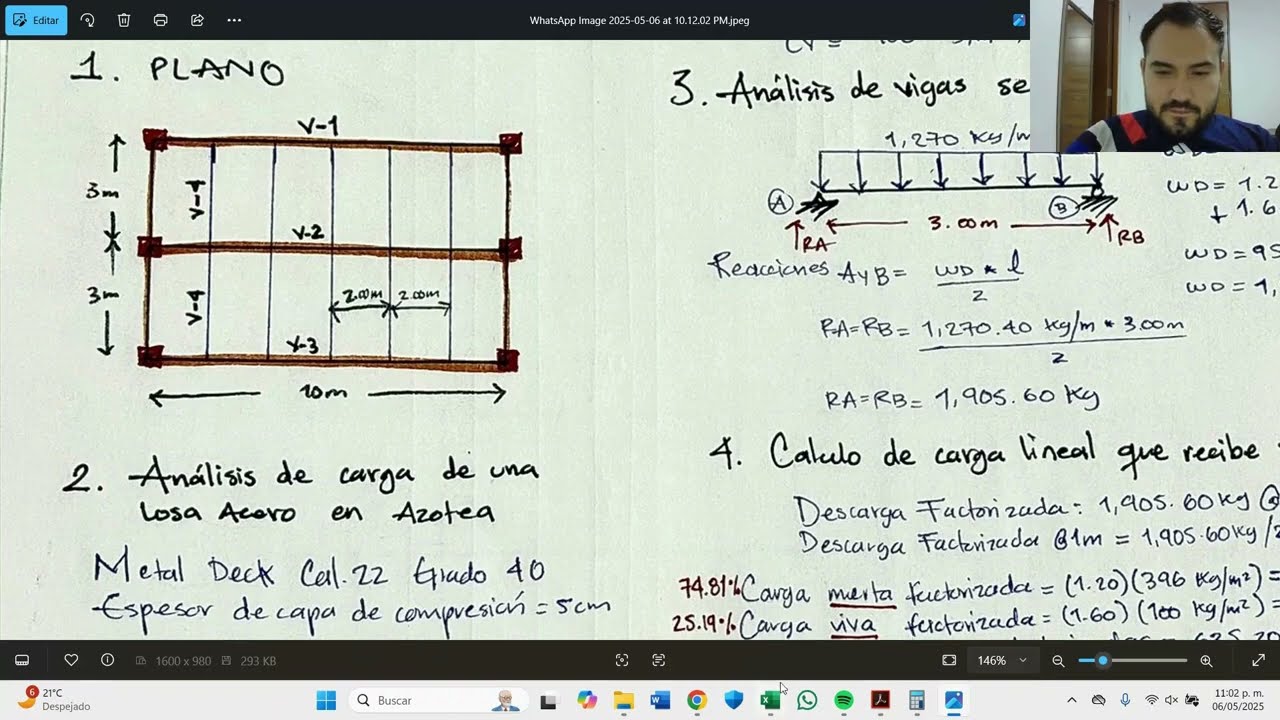 Editar
WhatsApp Image 2025-05-06 at 10.12.02 PM.jpeg
1. PLANO
V-1
3m
V-4
V-2
3m
V-4
2.00m 2.00m
V-3
10m
2. Análisis de carga de una
Losa Acero en Azotea
Metal Deck Cal. 22 Grado 40
Espesor de capa de compresión = 5cm
3. Análisis de vigas se
1,270 Kg/m
A
B
3.00m
RA
RB
WD = 1.2
+ 1.6
WD = 95
WD = 1,
Reacciones A y B = WD * l
2
RA=RB= 1,270.40 Kg/m * 3.00m
2
RA=RB= 1,905.60 Kg
4. Calculo de carga lineal que recibe
Descarga Factorizada: 1,905.60 Kg @
Descarga Factorizada @1m = 1,905.60Kg/2
74.81% Carga muerta factorizada = (1.20)(396 Kg/m²) =
25.19% Carga viva factorizada = (1.60)(100 Kg/m²) =
1600 x 980
293 KB
146%
6
21°C
Despejado
Buscar
11:02 p. m.
06/05/2025